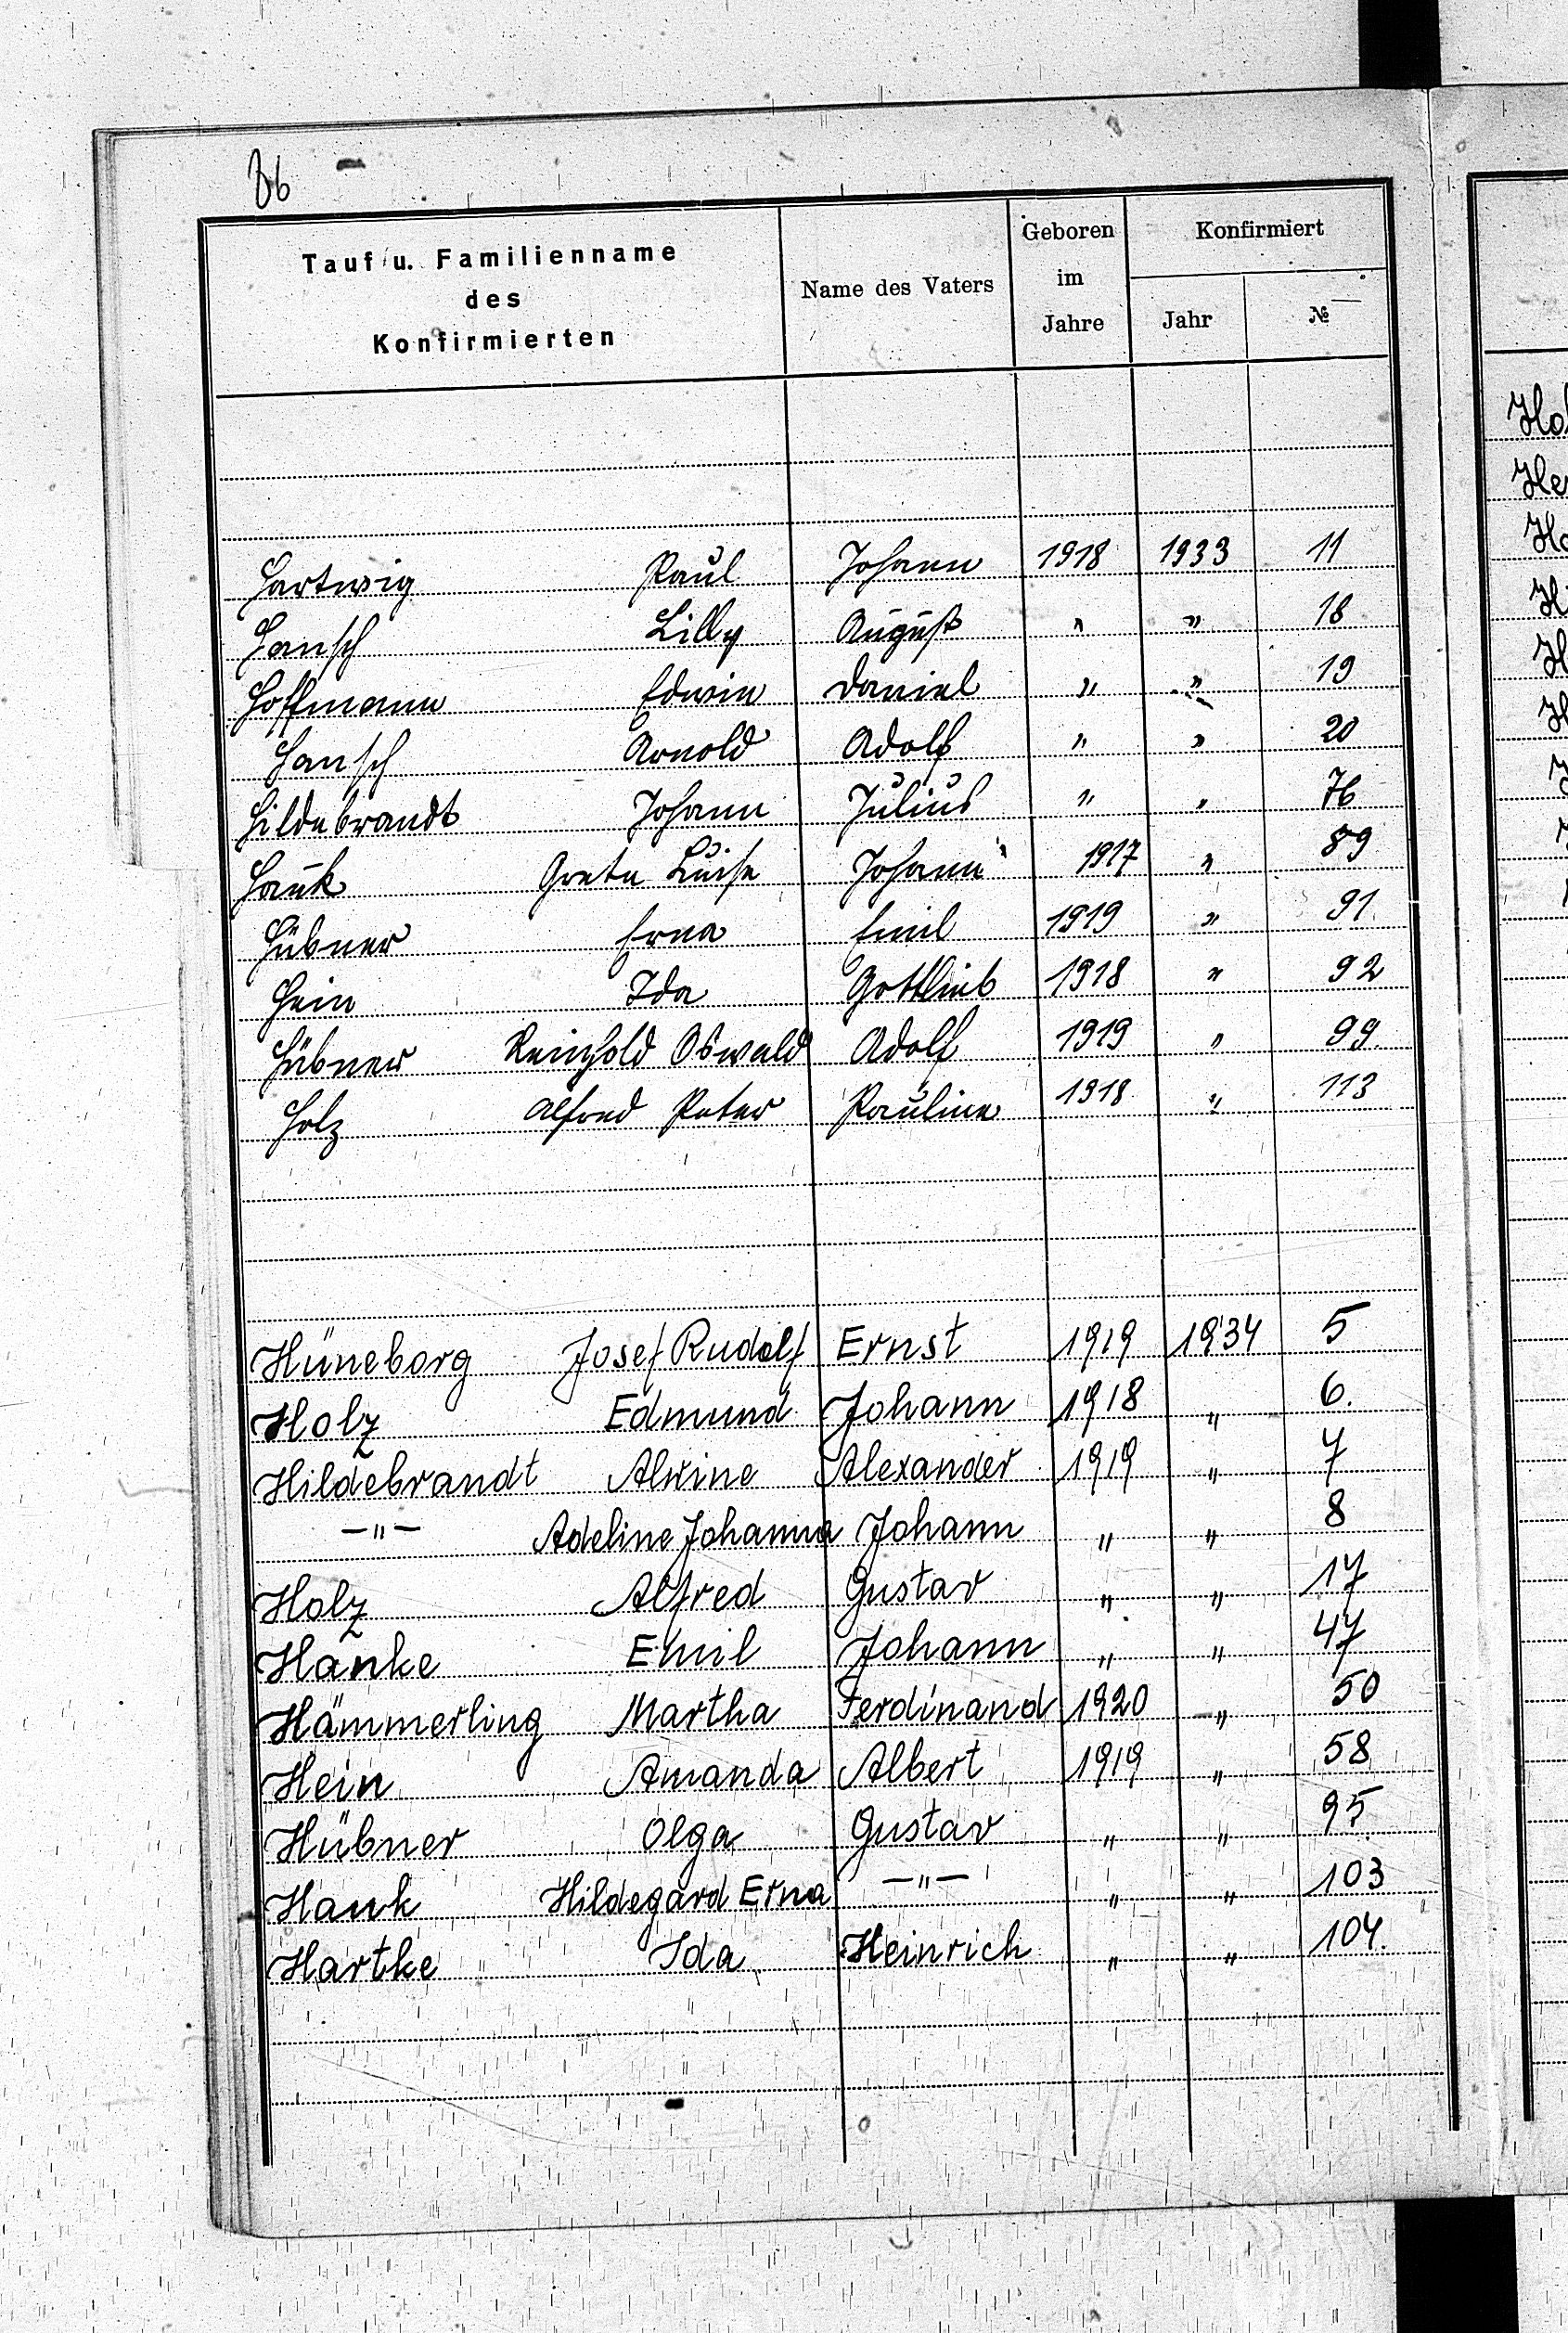 86
Tauf u. Familienname
des
Konfirmierten
Name des Vaters
Geboren
im
Jahre
Konfirmiert
Jahr
№
Hartwig Paul Johann 1918 1933 11
Hansch Lilly August " " 18
Hoffmann Edwin Daniel " " 19
Hansch Arnold Adolf " " 20
Hildebrandt Johann Julius " " 76
Hauk Greta Luise Johann 1917 " 89
Hübner Erna Emil 1919 " 91
Hein Ida Gottlieb 1918 " 92
Hübner Reinhold Oswald Adolf 1919 " 99.
Holz Alfred Peter Pauline 1918 " 113
Hüneborg Josef Rudolf Ernst 1919 1934 5
Holz Edmund Johann 1918 " 6.
Hildebrandt Alwine Alexander 1919 " 7
—"— Adeline Johanna Johann " " 8
Holz Alfred Gustav " " 17
Hanke Emil Johann " " 47
Hämmerling Martha Ferdinand 1920 " 50
Hein Amanda Albert 1919 " 58
Hübner Olga Gustav " " 95
Hauk Hildegard Erna —"— " " 103
Hartke Ida Heinrich " " 104.